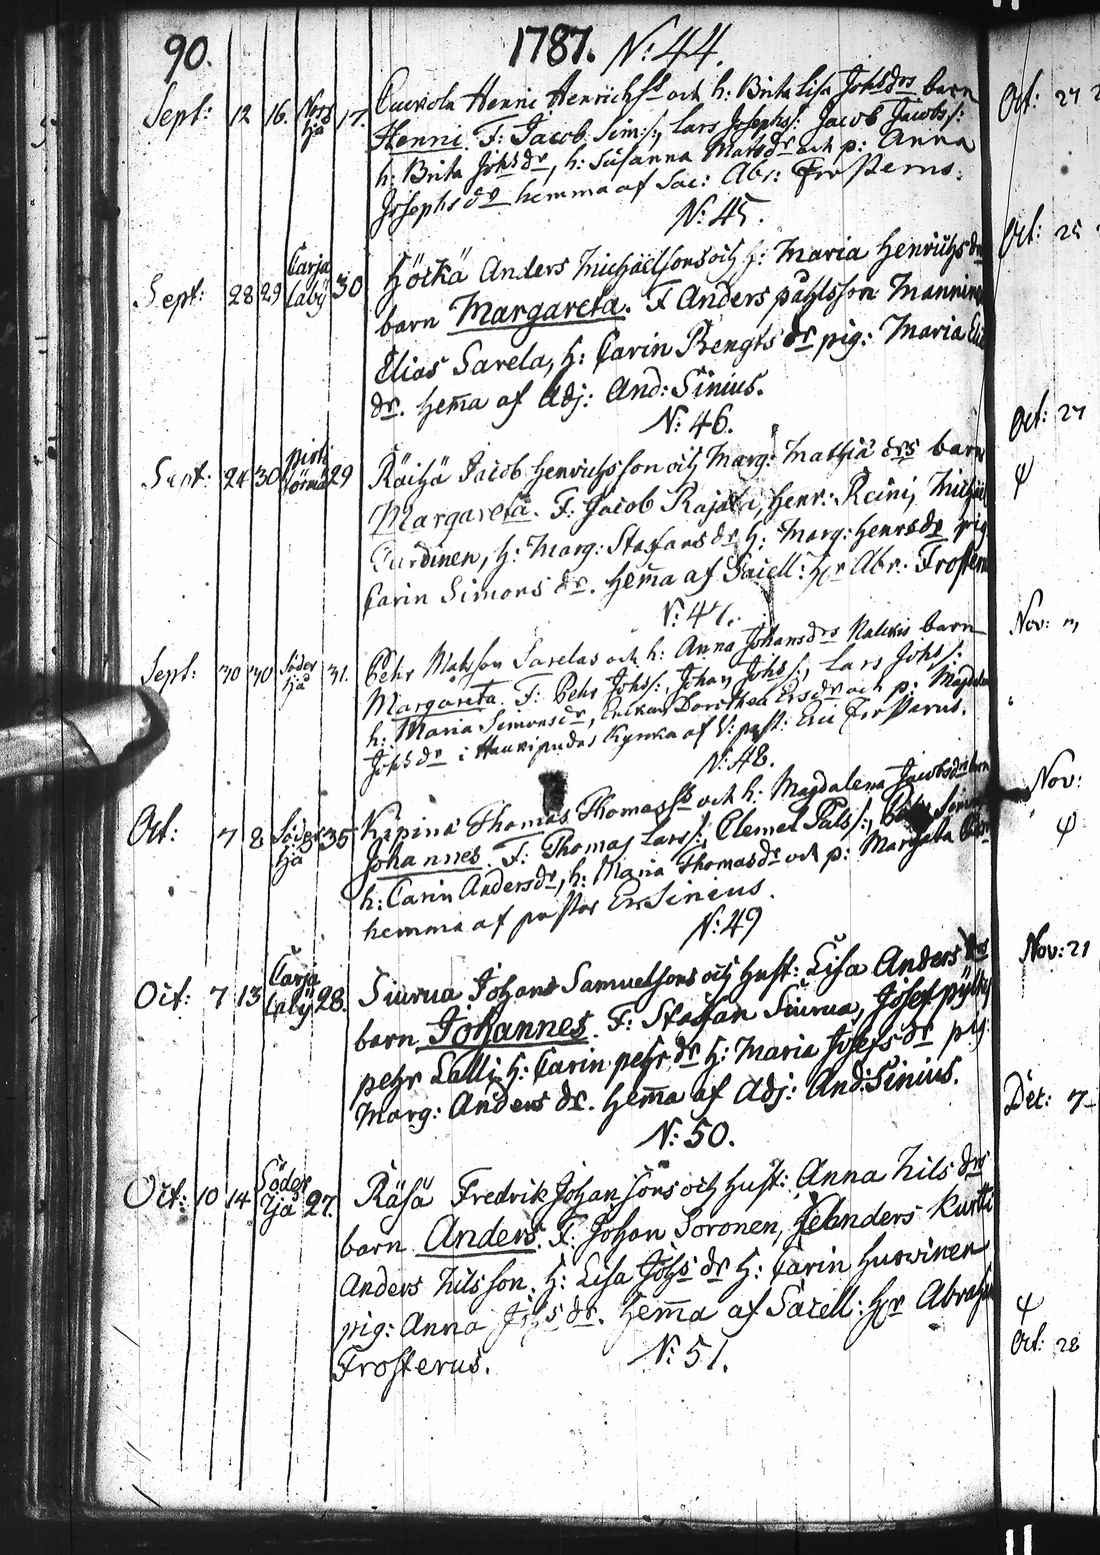 90. 1787. N: 44.
Sept: 12 16. Norr Ijå 17. Cuivola Henric Henrichss och h: Brita Lisa Johsdrs barn
Henric. F: Jacob Sim:s:, Lars Josephs: Jacob Jacobs:
h: Brita Johsdr, h: Susanna Matsdr och p: Anna
Josephsdr hemma af Sac: Abr: Frosterus.
N: 45.
Sept: 28 29 Carja laby 30 Höckä Anders Michaelsons och h: Maria Henrichsdrs
barn Margareta. F Anders påhlsson Manninen
Elias Sarela, h: Carin Bengts dr pig: Maria
dr. hem̄a af Adj: And: Sinius.
N: 46.
Sept: 24 30 29 Räihä Jacob Henrichsson och Marg: Mathiä drs barn
Margareta. F: Jacob Rajala, Henr: Reini, Michael
Turdinen, h: Marg: Stafans dr h: Marg: Henrsdr pig
Carin Simons dr. hem̄a af Sacell: Hr Abr: Frosterus
N: 47.
Sept: 30 30 Söder Ijå 31. Pehr Matsson Sarelas och h: Anna Johansdrs barn
Margareta. F: Pehr Johs:, Johan Johs:, Lars Johs:
h: Maria Simonsdr, Enckan Dorothea Ersdr och p: Magdalena
Johsdr i Haukipudas Kyrka af V: past: Eric Frosterus.
N: 48.
Oct: 7 8 Söder Ijå 35 Kipinä Thomas Thomass och h: Magdalena Jacobsdrs barn
Johannes. F: Thomas Lars:, Clemet Pals:,
h: Carin Andersdr, h: Maria Thomasdr och p: Margeta
hemma af pastor Er Sinius.
N: 49
Oct: 7 13 Carja laby 28. Siurua Johans Samuelsons och hust: Lisa Anders drs
barn Johannes. F: Staffan Siurua, Josef
pehr Lalli h: Carin pehr dr h: Maria Josefs dr pig
Marg: Anders dr. hem̄a af Adj: And: Sinius.
N: 50.
Oct: 10 14 Söder Ijå 27. Räsä Fredrik Johansons och hust: Anna Nils drs
barn Anders. F: Johan Soronen, Anders Kurtti
Anders Nilsson, h: Lisa Johs dr h: Carin Hurvinen
pig: Anna Johs dr. hem̄a af Sacell: Hr Abraham
Frosterus.
N: 51.
Oct: 27
Oct: 25
Oct: 27
Nov:
Nov:
Nov: 21
Det: 7
Oct: 28